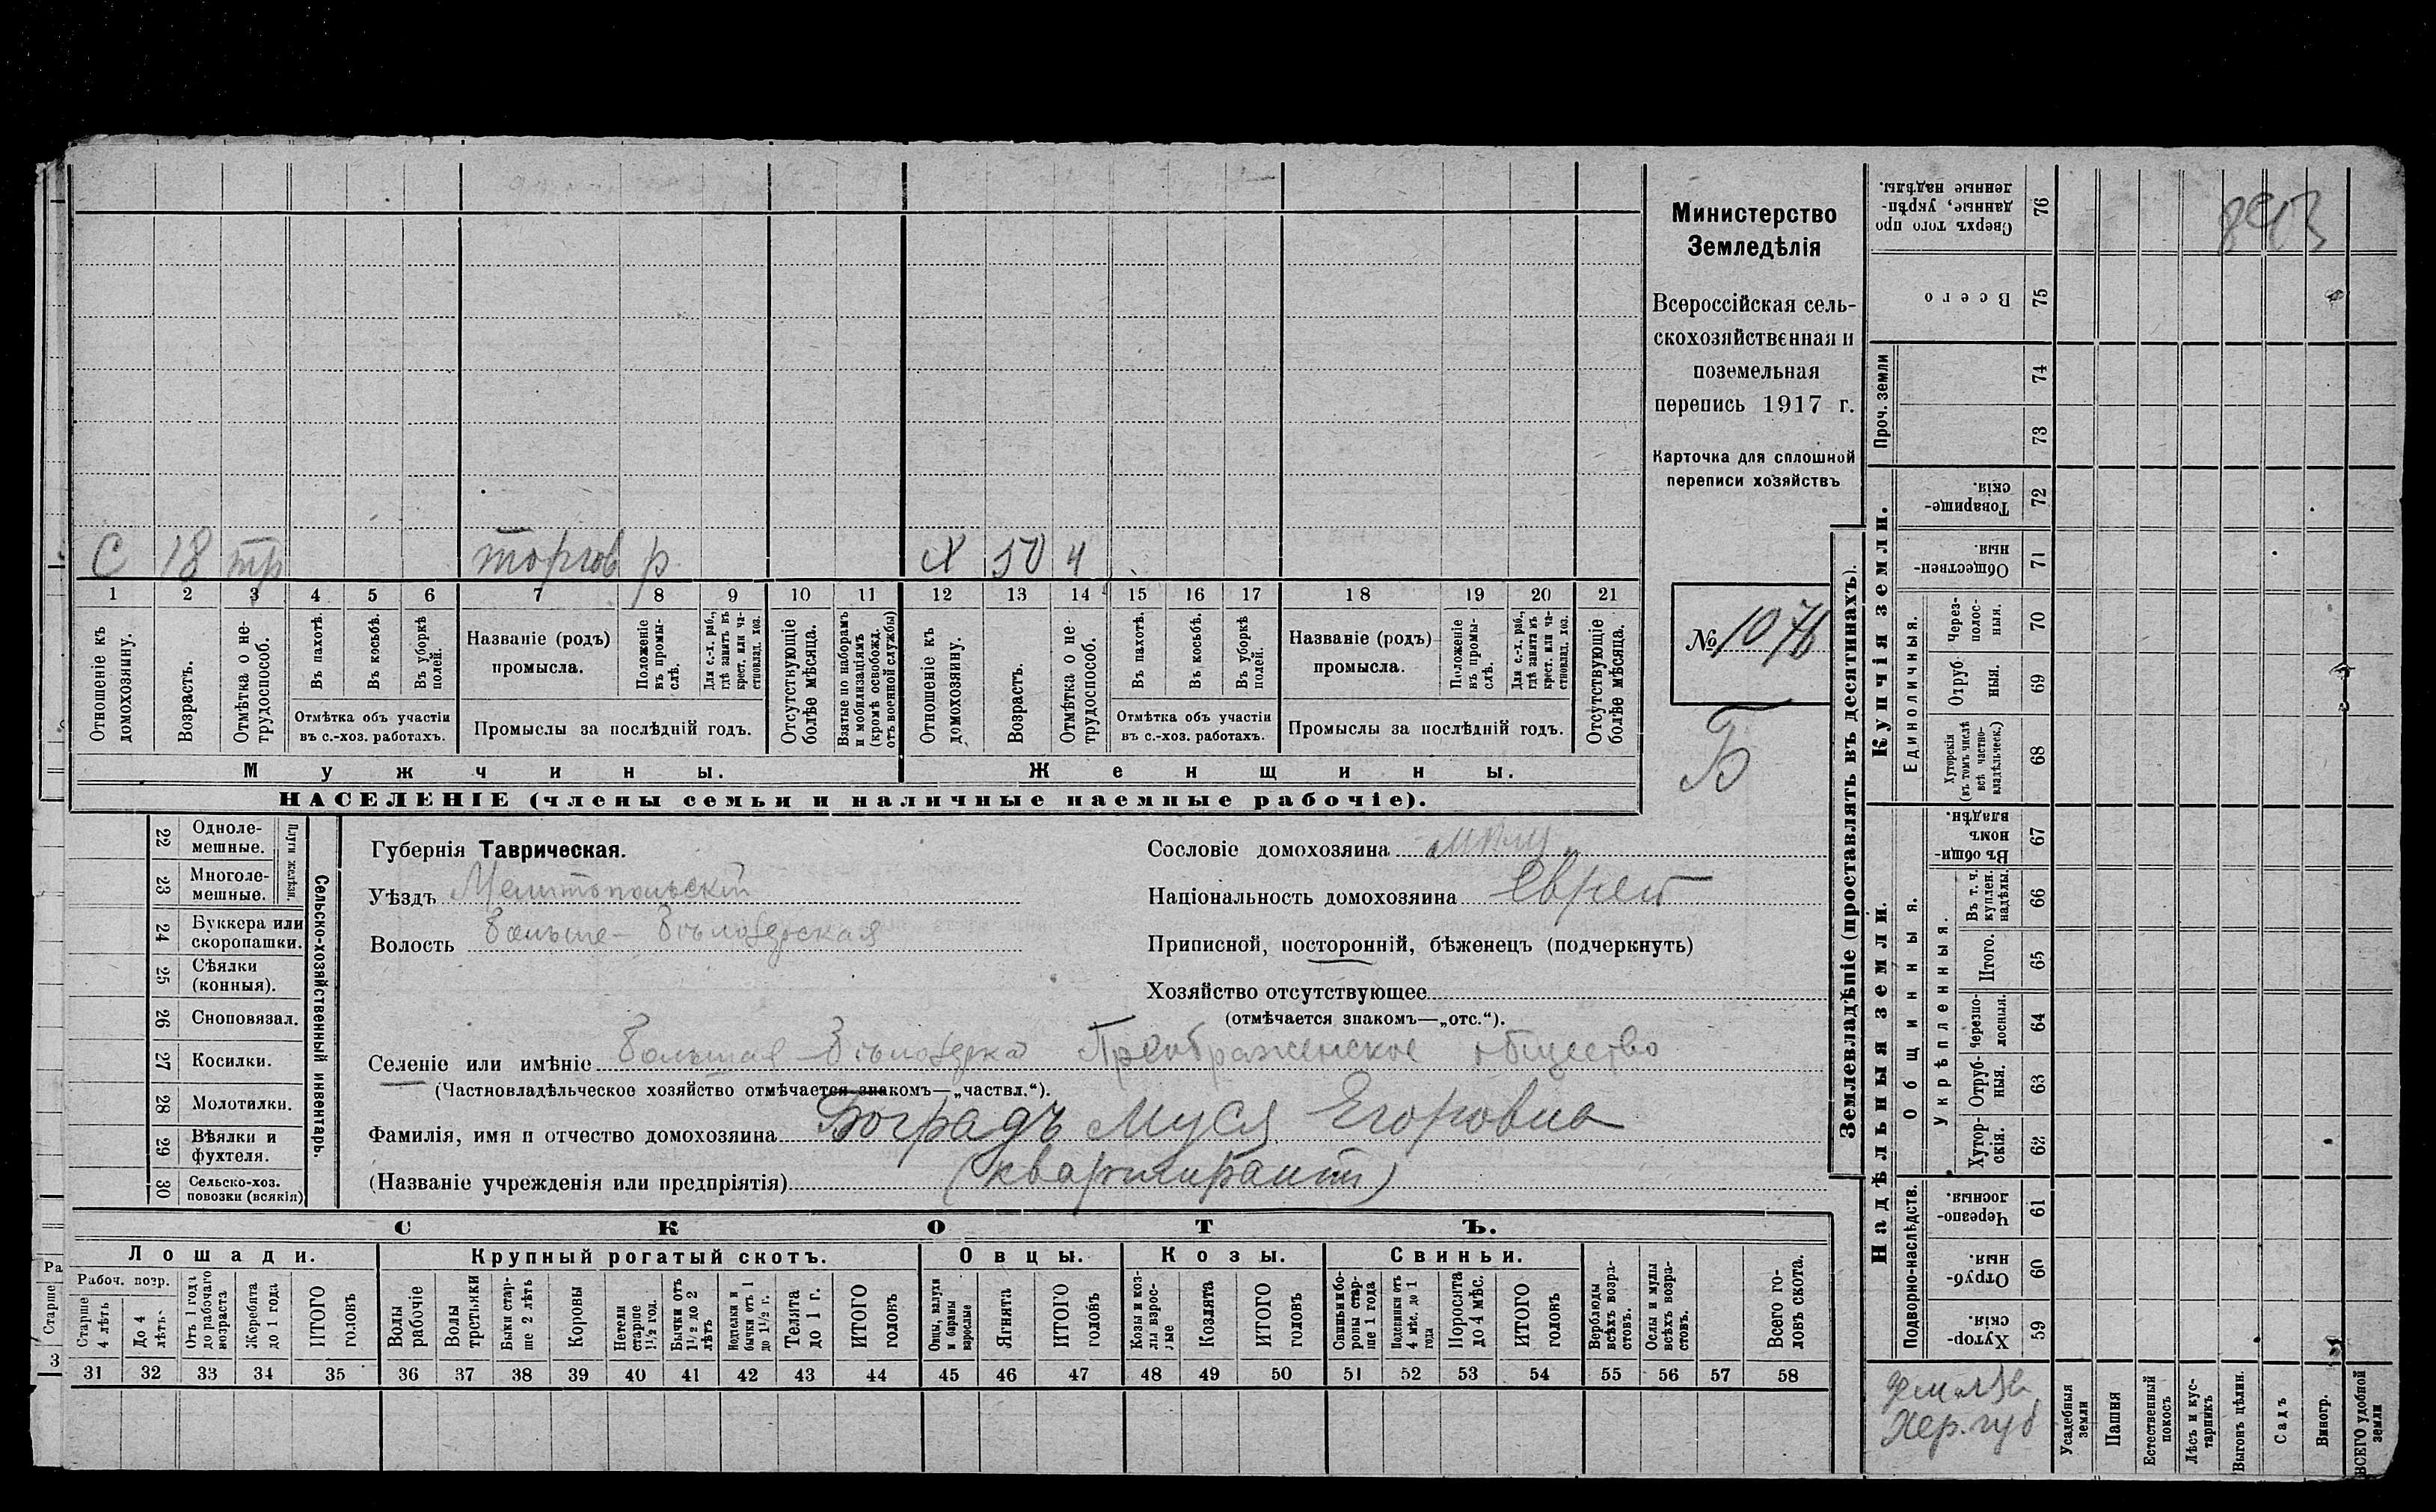 С 18 тр торгов р Х 50 ч
1 2 3 4 5 6 7 8 9 10 11 12 13 14 15 16 17 18 19 20 21
Отношеніе къ домохозяину.
Возрастъ.
Отмѣтка о нетрудоспособ.
Въ пахотѣ.
Въ косьбѣ.
Въ уборкѣ полей.
Отмѣтка объ участіи
въ с.-хоз. работахъ.
Названіе (родъ)
промысла.
Положеніе въ промыслѣ.
Для с.-х. раб., гдѣ занятъ въ крест. или частновлад. хоз.
Промыслы за послѣдній годъ.
Отсутствующіе болѣе мѣсяца.
Взятые по наборамъ и мобилизаціямъ (кромѣ освобожд. отъ военной службы)
Отношеніе къ домохозяину.
Возрастъ.
Отмѣтка о нетрудоспособ.
Въ пахотѣ.
Въ косьбѣ.
Въ уборкѣ полей.
Отмѣтка объ участіи
въ с.-хоз. работахъ.
Названіе (родъ)
промысла.
Положеніе въ промыслѣ.
Для с.-х. раб., гдѣ занята въ крест. или частновлад. хоз.
Промыслы за послѣдній годъ.
Отсутствующіе болѣе мѣсяца.
Мужчины. Женщины.
НАСЕЛЕНІЕ (члены семьи и наличные наемные рабочіе).
Министерство
Земледѣлія
Всероссійская сель-
скохозяйственная и
поземельная
перепись 1917 г.
Карточка для сплошной
переписи хозяйствъ
№ 1076
Б
Сельско-хозяйственный инвентарь.
Плуги желѣзн.
22 Одноле-
мешные.
23 Многоле-
мешные.
24 Буккера или
скоропашки.
25 Сѣялки
(конныя).
26 Сноповязал.
27 Косилки.
28 Молотилки.
29 Вѣялки и
фухтеля.
30 Сельско-хоз.
повозки (всякія)
Губернія Таврическая.
Уѣздъ Мелитопольскій
Волость Больше-Бѣлозерская
Сословіе домохозяина мѣщ
Національность домохозяина еврей
Приписной, посторонній, бѣженецъ (подчеркнуть)
Хозяйство отсутствующее
(отмѣчается знакомъ—„отс.“).
Селеніе или имѣніе Большая-Бѣлозерка Преображенское общество
(Частновладѣльческое хозяйство отмѣчается знакомъ—„частвл.“).
Фамилія, имя и отчество домохозяина Боградъ Муся Егоровна
(Названіе учрежденія или предпріятія) (квартирант)
СКОТЪ.
Лошади. Крупный рогатый скотъ. Овцы. Козы. Свиньи.
Рабоч. возр.
Старше 4 лѣтъ
До 4 лѣтъ.
Отъ 1 года до рабочаго возраста
Жеребята до 1 года
ИТОГО головъ
Волы рабочіе
Волы третьяки
Быки старше 2 лѣтъ
Коровы
Нетели старше 1½ год.
Бычки отъ 1½ до 2 лѣтъ
Подтелки и бычки отъ 1 до 1½ г.
Телята до 1 г.
ИТОГО головъ
Овцы, валухи и бараны взрослые
Ягнята
ИТОГО головъ
Козы и козлы взрослые
Козлята
ИТОГО головъ
Свиньи и боровы старше 1 года
Подсвинки отъ 4 мѣс. до 1 года
Поросята до 4 мѣс.
ИТОГО головъ
Верблюды всѣхъ возрастовъ.
Ослы и мулы всѣхъ возрастовъ.
Всего головъ скота.
31 32 33 34 35 36 37 38 39 40 41 42 43 44 45 46 47 48 49 50 51 52 53 54 55 56 57 58
Ра
Старше
3
Землевладѣніе (проставлять въ десятинахъ).
Купчія земли.
Надѣльныя земли.
Проч. земли
Единоличныя.
Общинныя.
Укрѣпленныя.
Подворно-наслѣдств.
76 Сверхъ того проданные, укрѣпленные надѣлы.
75 Всего
74
73
72 Товарищескія.
71 Общественныя.
70 Черезполосныя.
69 Отрубныя.
68 Хуторскія (въ томъ числѣ всѣ частновладѣльческ.)
67 Въ общинномъ владѣн.
66 Въ т. ч. куплен. надѣлы.
65 Итого.
64 Черезполосныя.
63 Отрубныя.
62 Хуторскія.
61 Черезполосныя.
60 Отрубныя.
59 Хуторскія.
Хер. губ
Усадебныя земли
Пашня
Естественный покосъ
Лѣсъ и кустарникъ
Выгонъ цѣлин.
Садъ
Виногр.
ВСЕГО удобной земли